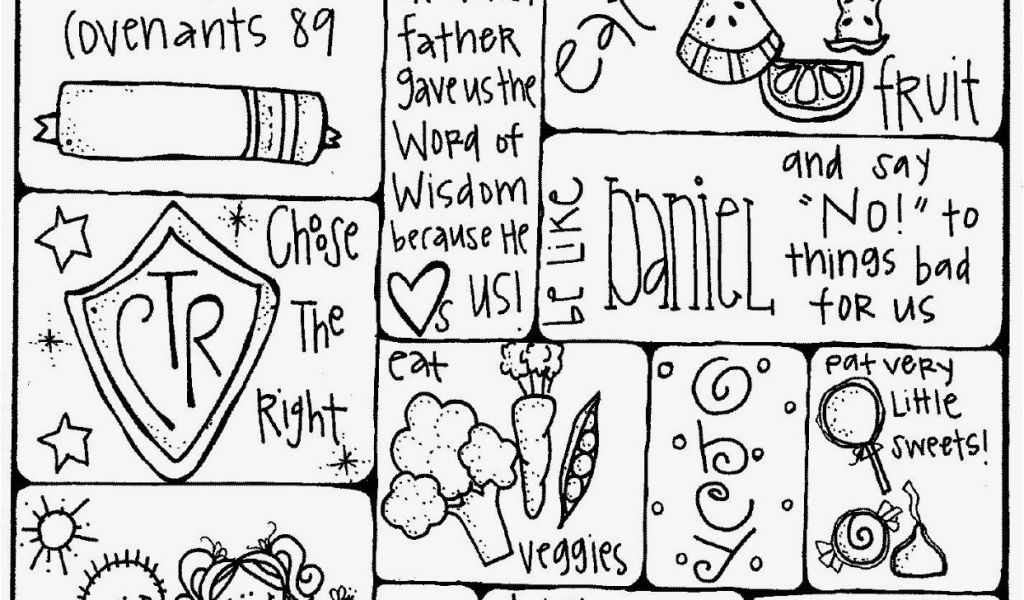 Covenants 89
father
gave us the
Word of
Wisdom
because He
s us!
eat
fruit
be like
Daniel
and say
"No!" to
things bad
for us
Choose
The
Right
CTR
eat
veggies
obey
eat very
Little
sweets!